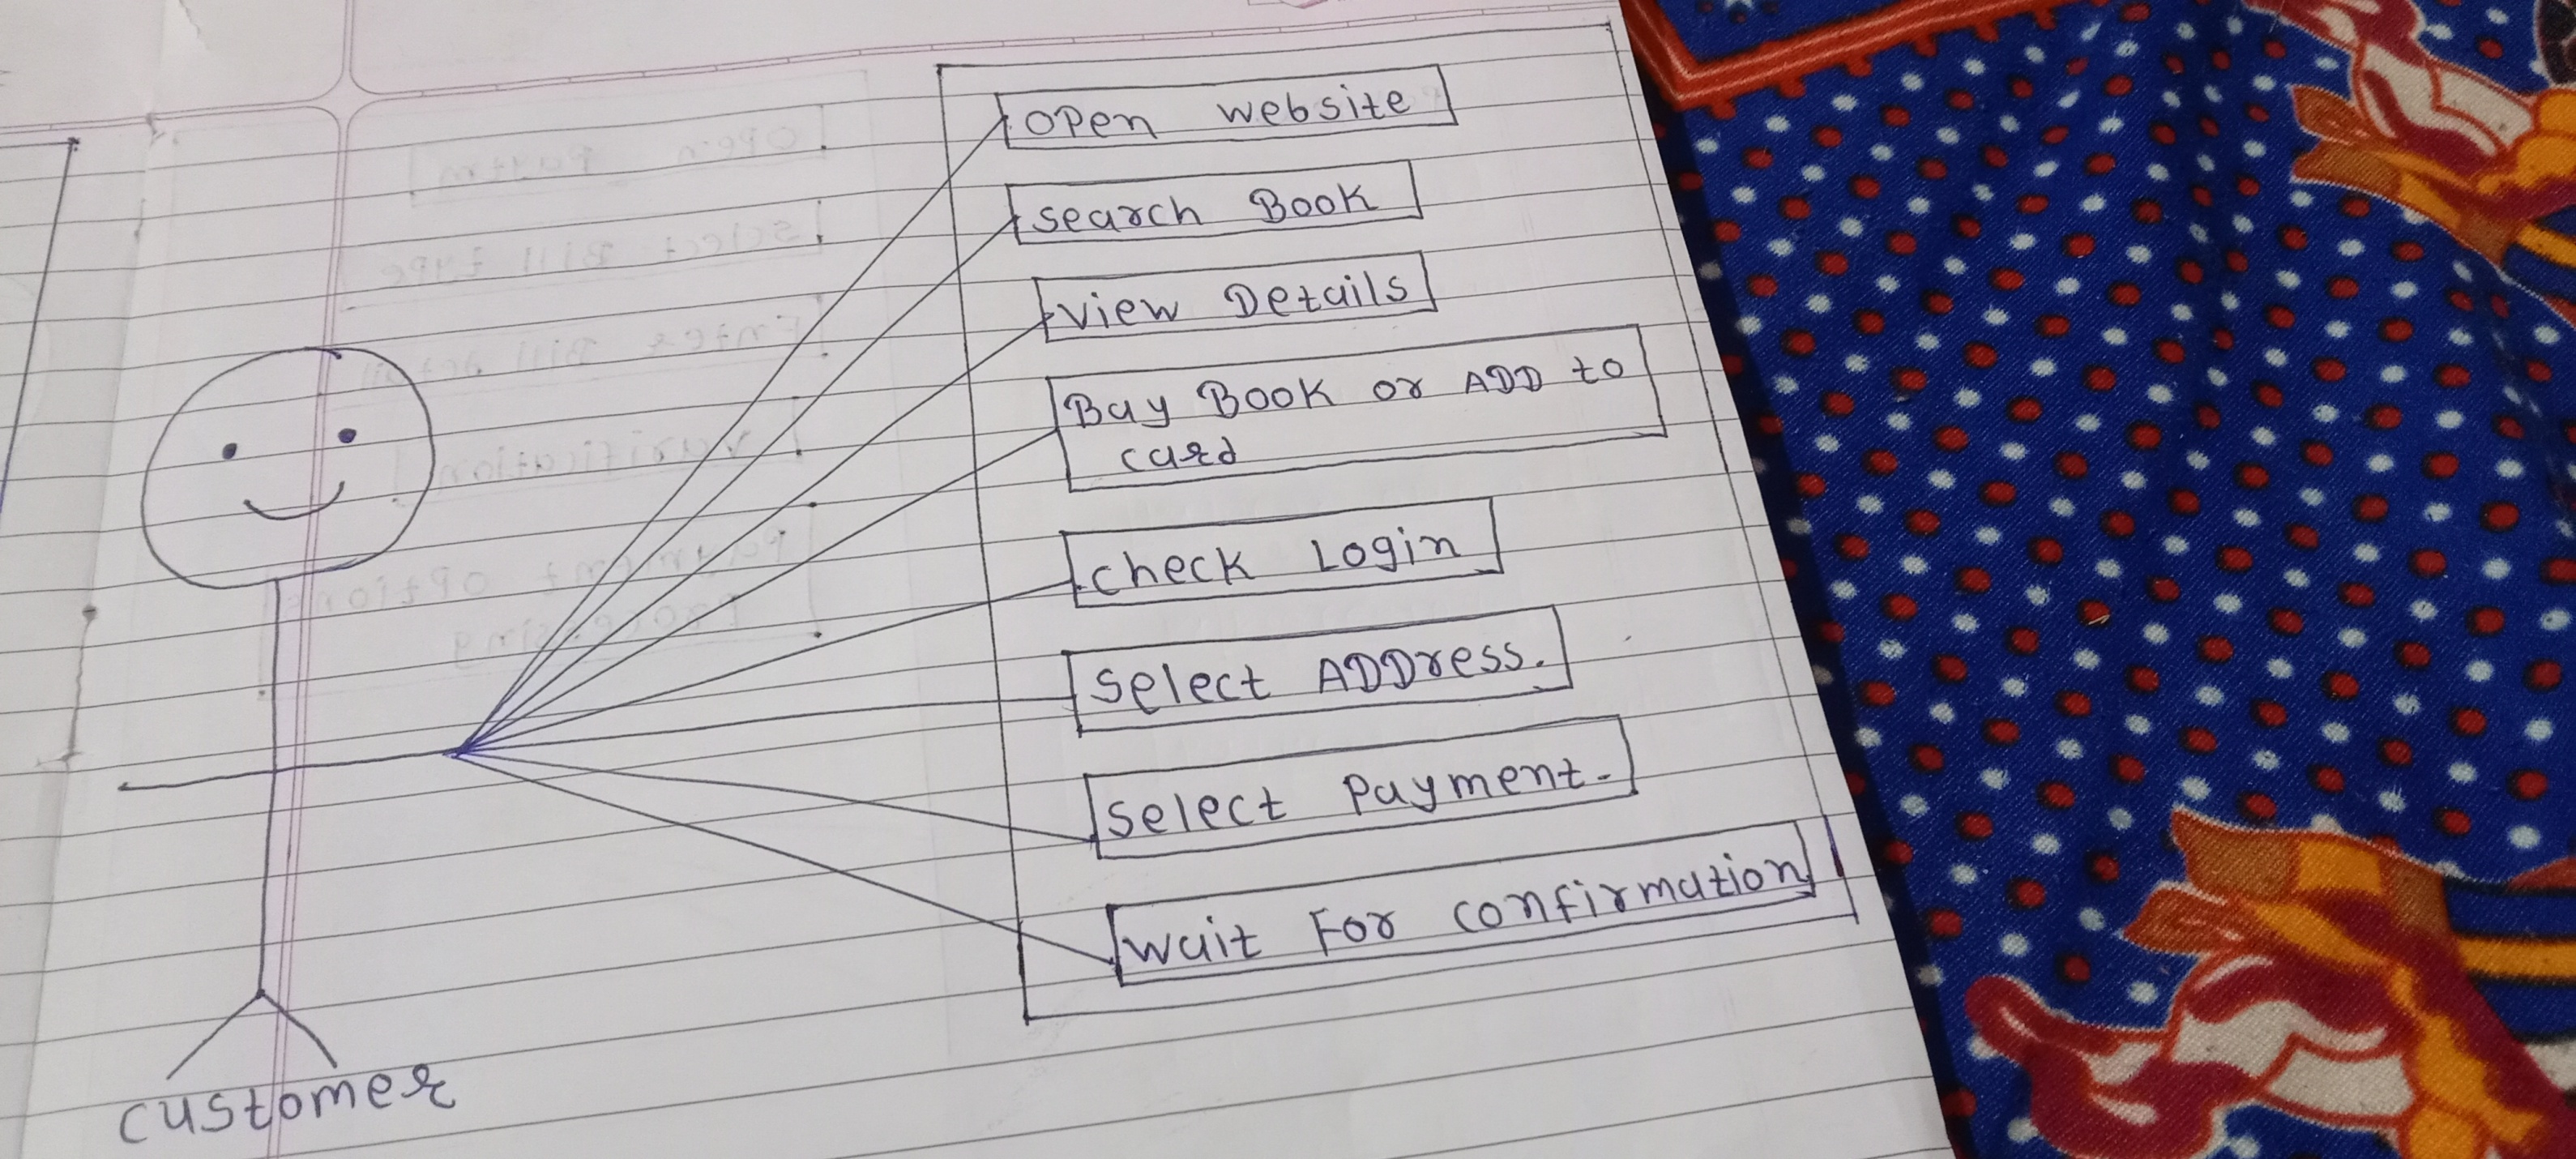 open website
search Book
view Details
Bay Book or ADD to
card
check Login
select ADDress.
select Payment.
wait For confirmation
customer